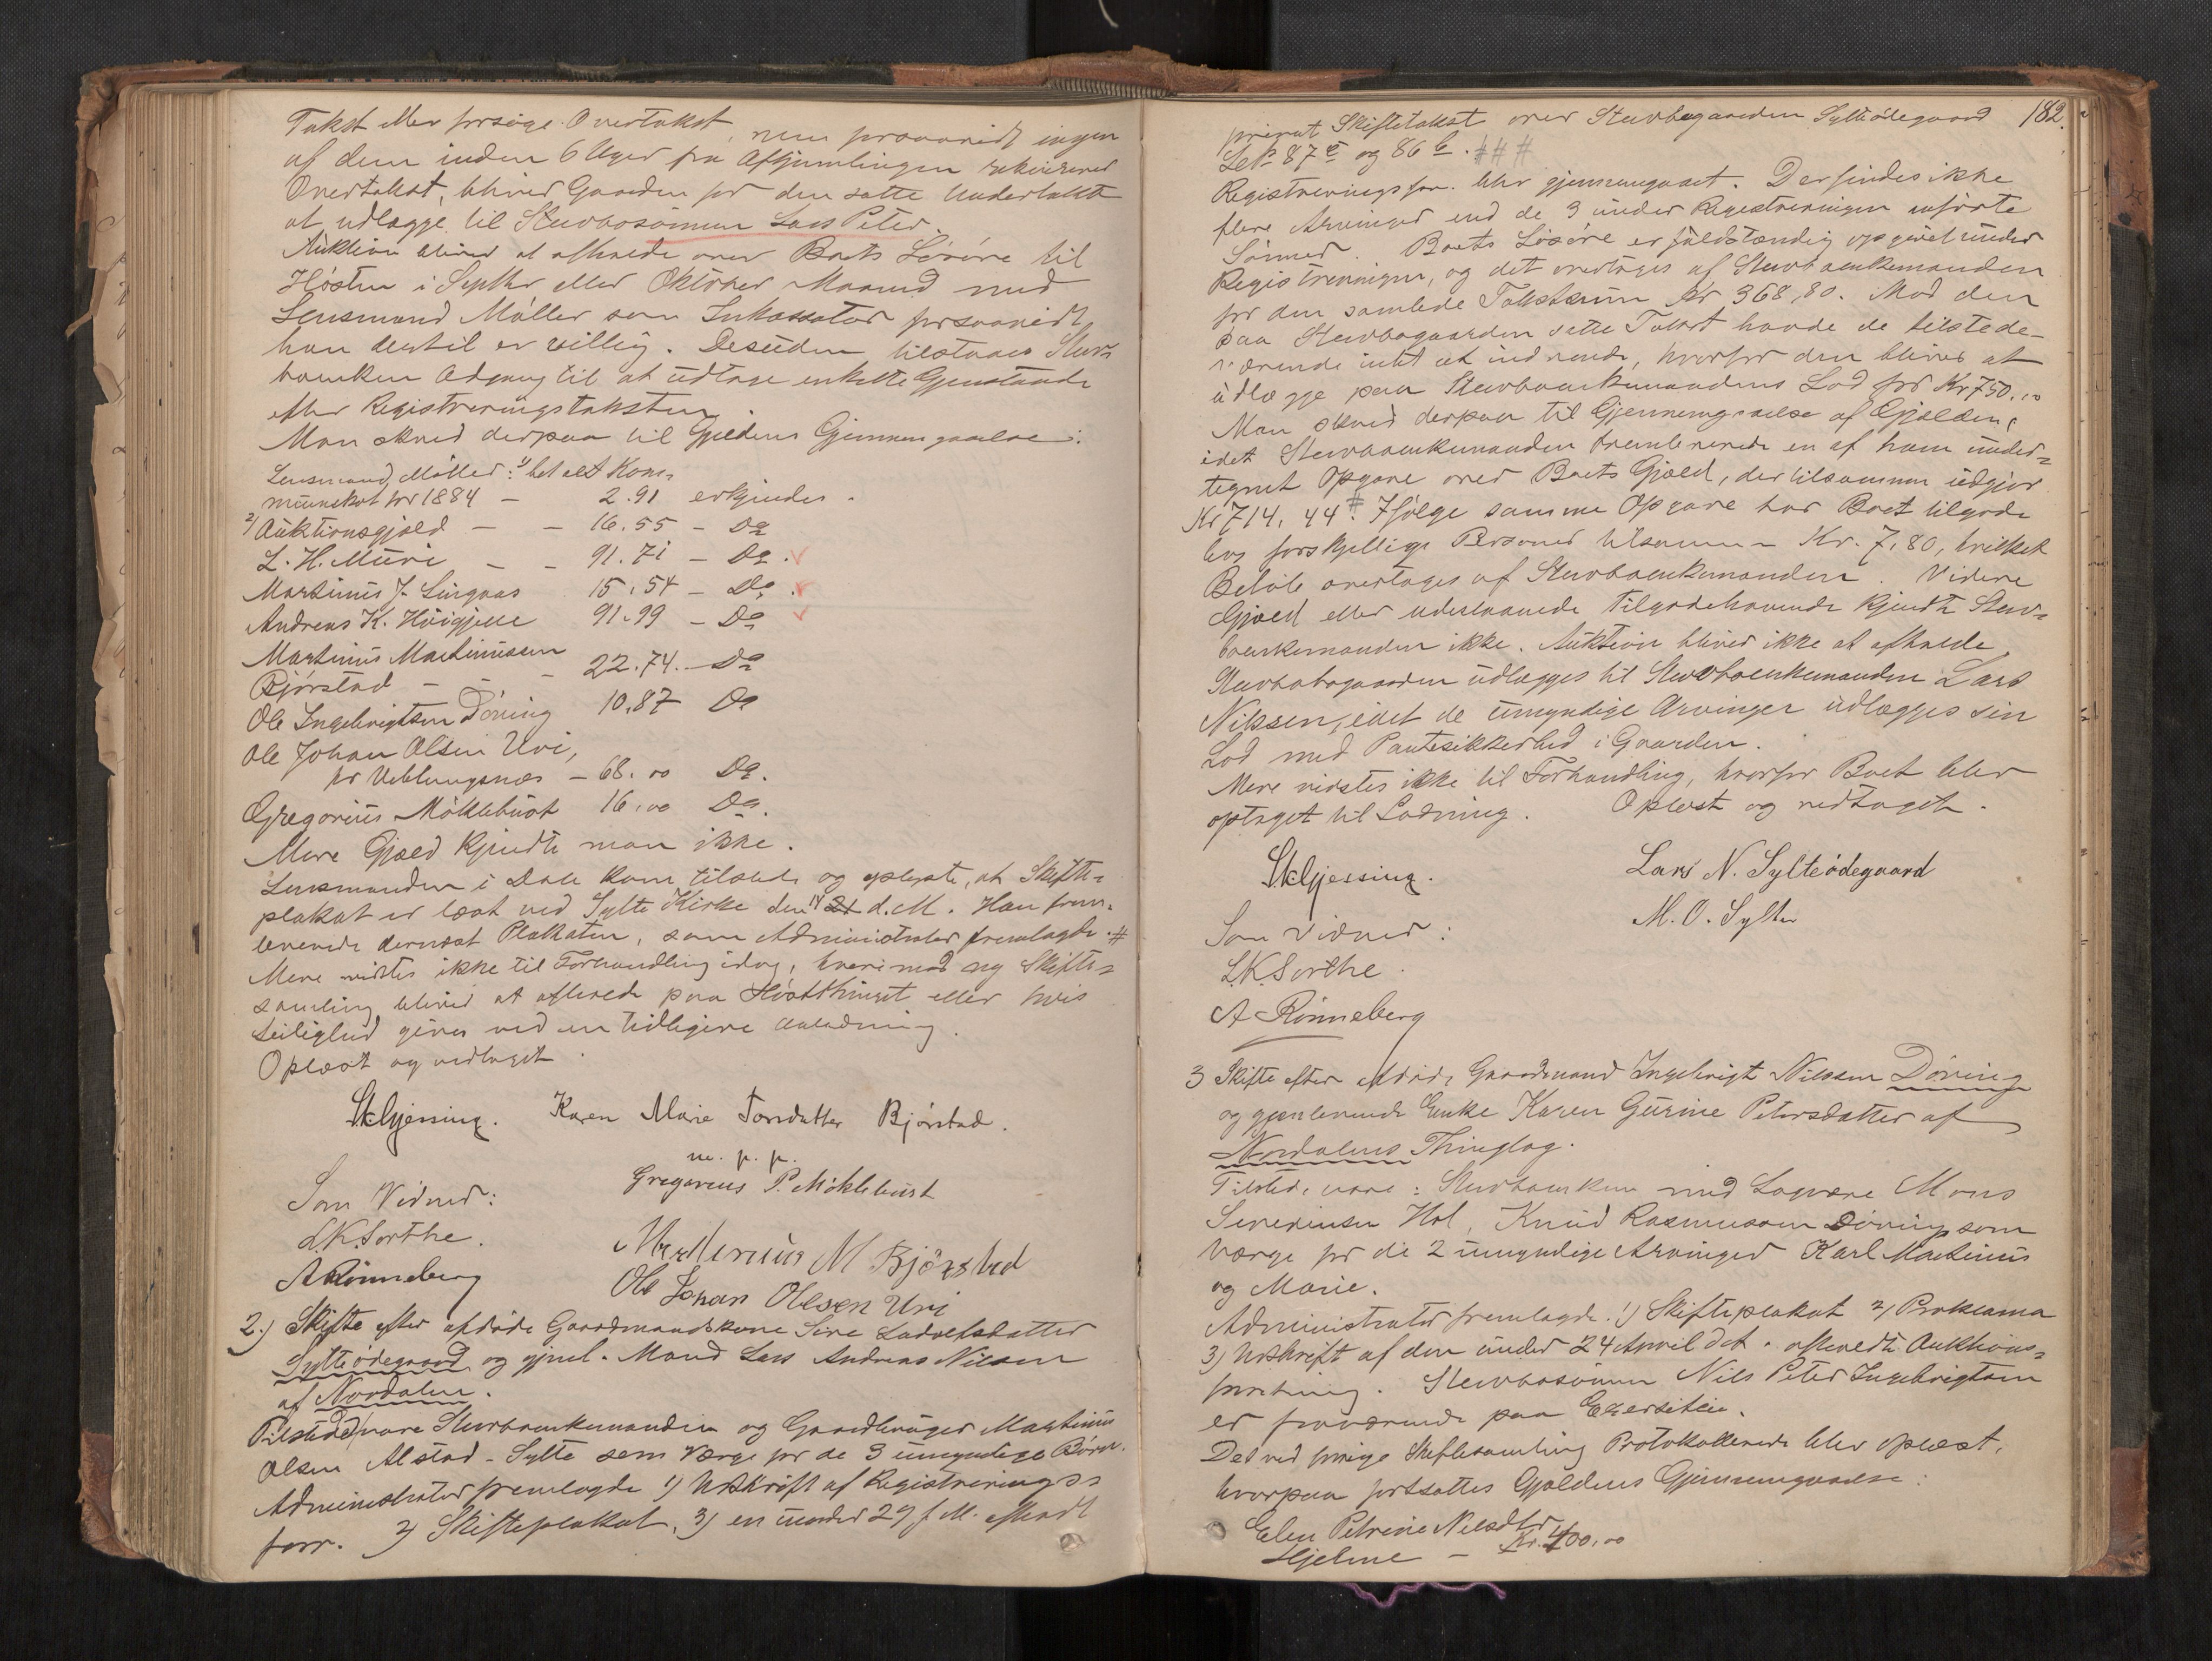 Takst eller forsøge Overtakst, men forsaavidt ingen
af dem inden 6 Uger fra Afhjemlingen rekvirerer
Overtakst, bliver Gaarden for den satte Undertakst
at udlægge til Stervbosønnen Lars Peter.
Auktion bliver at afholde over Boets Løsøre til
Høsten i Septbr eller Oktober Maaned med
Lensmand Møller som Inkassator forsaavidt
han dertil er villig. Desuden tilstaaes Sterv-
boenken Adgang til at udtage enkelte Gjenstande
efter Registreringstaksten.
Man skred derpaa til Gjældens Gjennemgaaelse:
Lensmand Møller: 1) betalt Kom-
muneskat for 1884 - 2.91 erkjendes.
2) Auktionsgjæld - - 16.55 - Do
L. H. Muri - - 91.71 - Do.
Martinus J. Lingaas 15.54 - Do.
Andreas K. Høigjelle 91.99 - Do
Martinus Martinussen
Bjørstad - - - 22.74 - Do
Ole Ingebrigtsen Døving 10.87 Do
Ole Johan Olsen Uri,
pr Veblungsnæs - 68.00 Do.
Gregorius Møklebust 16.00 Do.
Mere Gjæld kjendte man ikke.
Lensmanden i Dale kom tilstede og oplyste, at Skifte-
plakat er læst ved Sylte Kirke den 14 21 d. M. Han frem-
leverede dernæst Plakaten, som Administrator fremlagde. #
Mere vidstes ikke til Forhandling idag, hvorimod ny Skifte-
samling bliver at afholde paa Høstthinget eller hvis
Leilighed gives ved en tidligere Anledning.
Oplæst og vedtaget.
Stklyessing. Karen Marie Torsdatter Bjørstad.
m. p. p.
Som Vidner: Gregorius P. Møklebust
L.K. Sorthe. Marttenius M Bjørstad
A Rønneberg Ole Johan Olesen Uri
2.) Skifte efter afdøde Gaardmandskone Sire Ladvelsdatter
Sylteødegaard og gjenl. Mand Lars Andreas Nilsen
af Nordalen.
Tilstede vare Stervboenkemanden og Gaardbruger Martinus
Olsen Alstad-Sylte som Værge for de 3 umyndige Børn.
Administrator fremlagde 1) Udskrift af Registrerings-
forr. 2) Skifteplakat, 3) en under 29 f. M. afholdt
182.
privat Skiftetakst over Stervbogaarden Sylteødegaard
Lbn 87 c og 86 b. ###
Registreringsforr. blev gjennemgaaet. Der findes ikke
flere Arvinger end de 3 under Registreringen anførte
Sønner. Boets Løsøre er fuldstændig opgivet under
Registreringen, og det overtages af Stervboenkemanden
for den samlede Takstsum Kr 368,80. Mod den
paa Stervbogaarden satte Takst havde de tilstede-
værende intet at indvende, hvorfor den bliver at
udlægge paa Stervboenkemandens Lod for Kr 750.00
Man skred derpaa til Gjennemgaaelse af Gjælden,
idet Stervboenkemanden fremleverede en af ham under-
tegnet Opgave over Boets Gjæld, der tilsammen udgjør
Kr 714,44 #. Ifølge samme Opgave har Boet tilgode
hos forskjellige Personer tilsammen Kr. 7,80, hvilket
Beløb overtages af Stervboenkemanden. Videre
Gjæld eller udestaaende Tilgodehavende kjendte Sterv-
boenkemanden ikke. Auktion bliver ikke at afholde.
Stervbogaarden udlægges til Stervboenkemanden Lars
Nilssen, idet de umyndige Arvinger udlægges sin
Lod med Pantesikkerhed i Gaarden.
Mere vidstes ikke til Forhandling, hvorfor Boet blev
optaget til Lodning. Oplæst og vedtaget.
Stklyessing. Lars N. Sylteødegaard
Som Vidner: M. O. Sylte
L.K. Sorthe.
A Rønneberg
3 Skifte efter afdøde Gaardmand Ingebrigt Nilssen Døving
og gjenlevende Enke Karen Gurine Petersdatter af
Nordalens Thinglag.
Tilstede vare: Stervboenken med Lagværge Mons
Severinsen Hol, Knud Rasmussen Døving som
Værge for de 2 umyndige Arvinger Karl Martinus
og Marie.
Administrator fremlagde: 1) Skifteplakat 2) Proklama
3) Udskrift af den under 24 April d.A. afholdte Auktions-
forretning. Stervbosønnen Nils Peter Ingebrigtsen
er fraværende paa Exersitie.
Det ved forrige Skiftesamling Protokollerede blev oplæst,
hvorpaa fortsattes Gjældens Gjennemgaaelse:
Elen Petrine Nilsdtr
Hjelme - Kr. 400.00